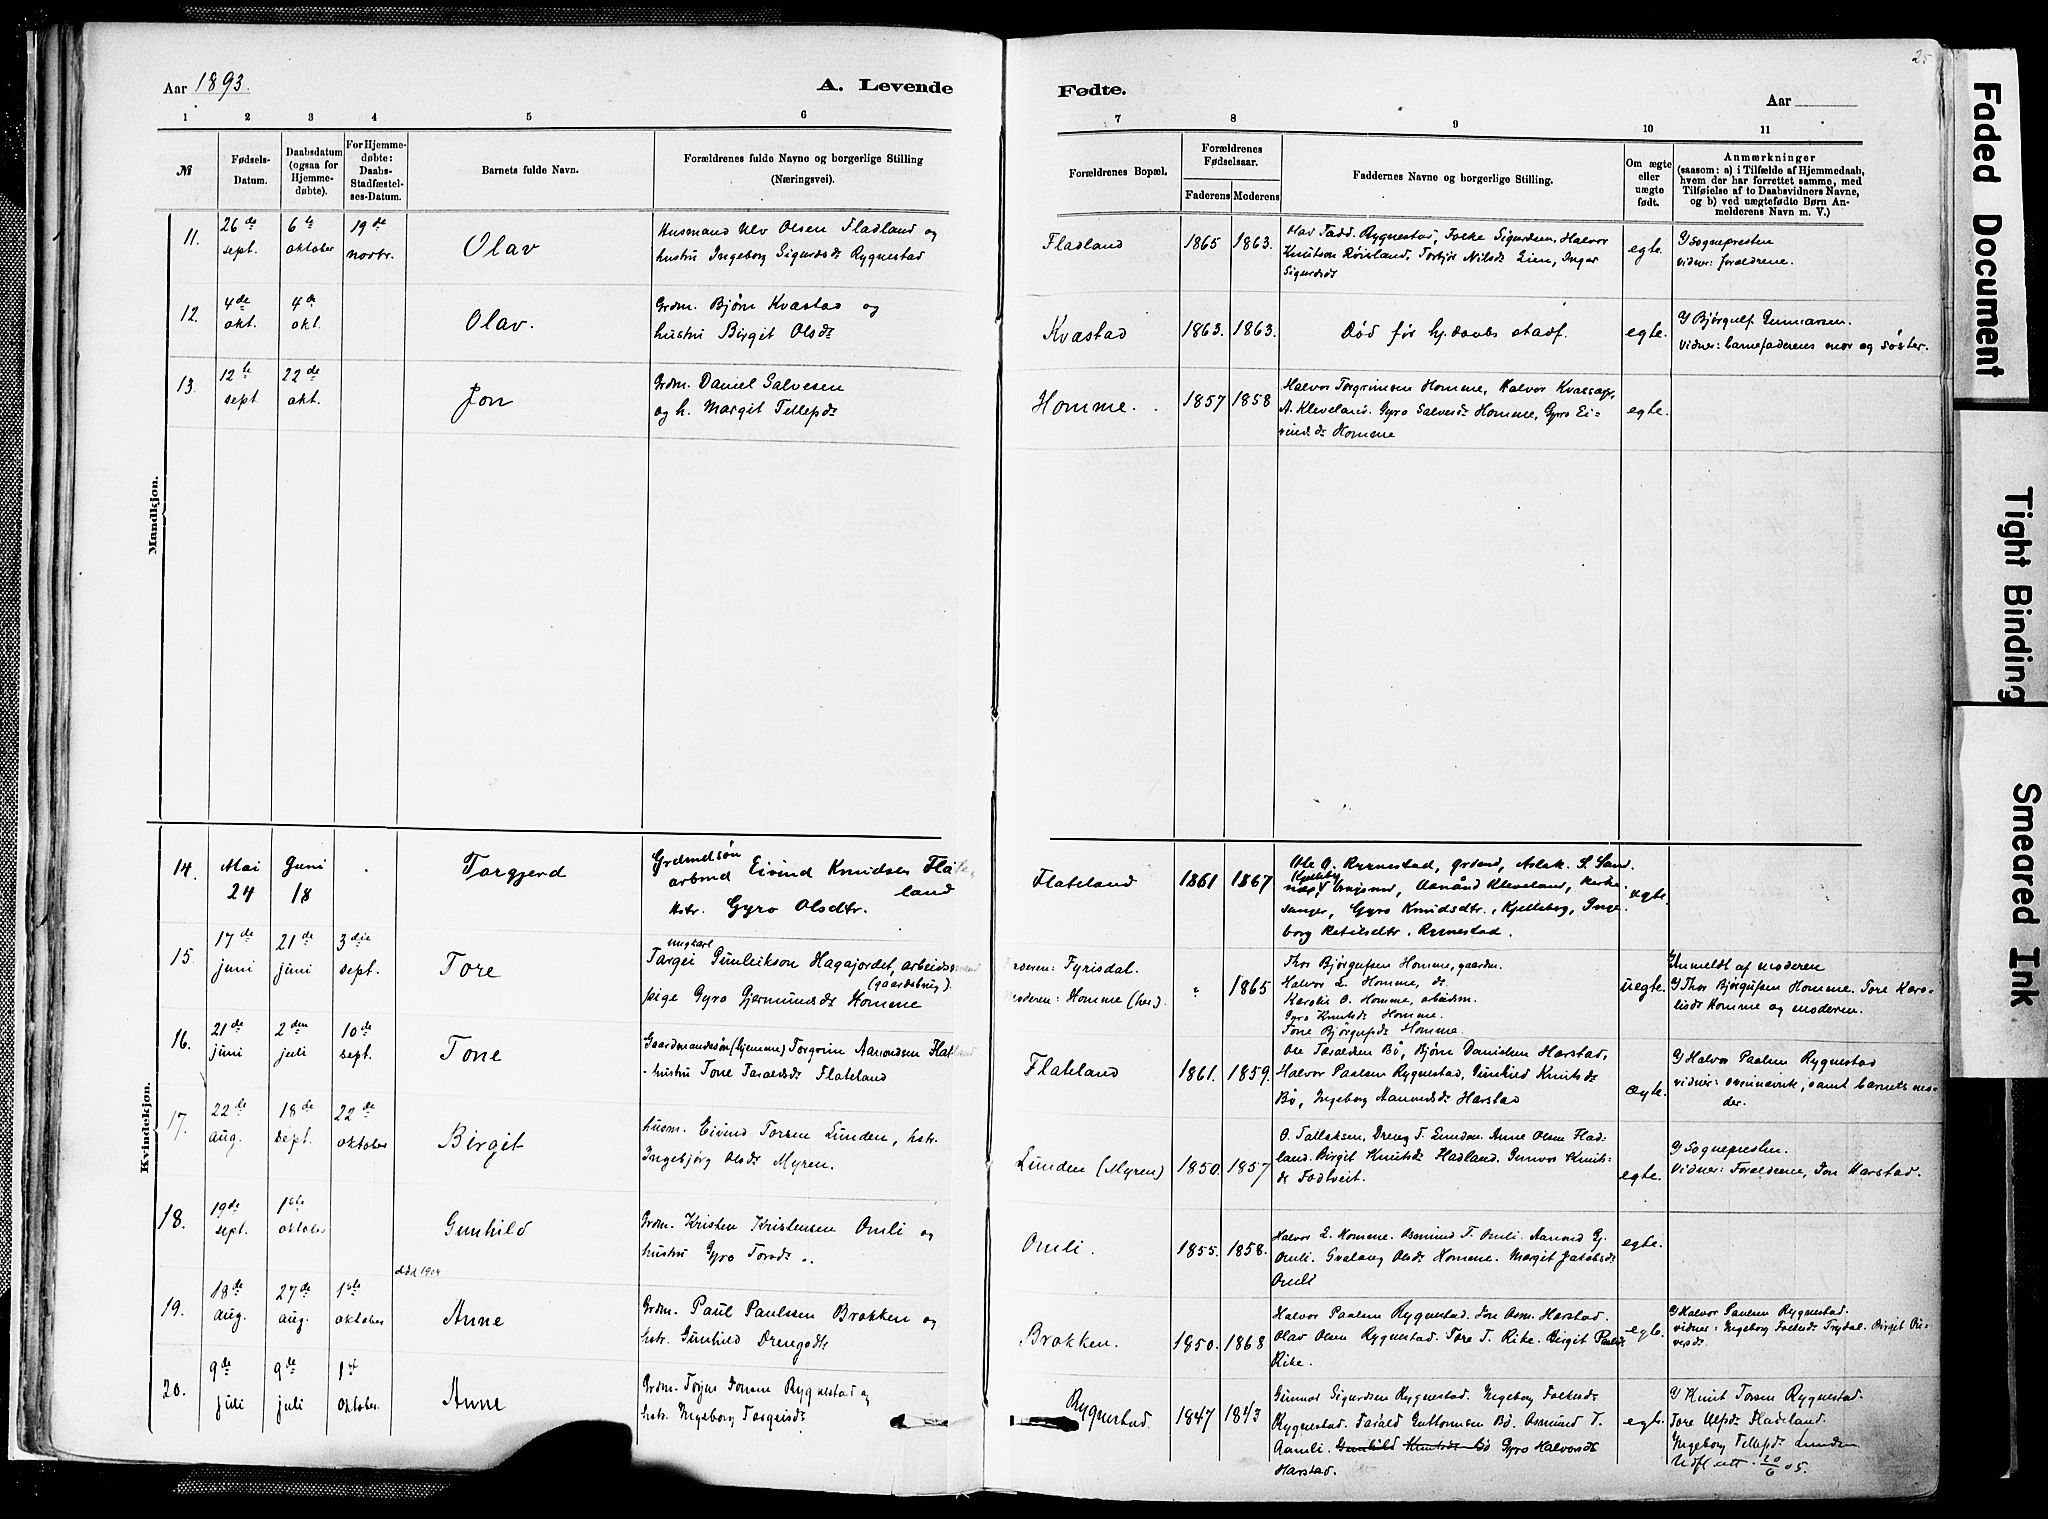 25
Aar 1893.
A. Levende Fødte.
Aar
1 2 3 4 5 6 7 8 9 10 11
№
Fødsels-Datum.
Daabsdatum (ogsaa for Hjemme-døbte).
For Hjemme-døbte: Daabs-Stadfæstel-ses-Datum.
Barnets fulde Navn.
Forældrenes fulde Navne og borgerlige Stilling
(Næringsvei).
Forældrenes Bopæl.
Forældrenes Fødselsaar.
Faderens Moderens
Faddernes Navne og borgerlige Stilling.
Om ægte eller uægte født.
Anmærkninger
(saasom: a) i Tilfælde af Hjemmedaab,
hvem der har forrettet samme, med
Tilføielse af to Daabsvidners Navne,
og b) ved uægtefødte Børn An-
melderens Navn m. V.)
Mandkjøn.
11. 26de sept. 6te oktober 19de novbr. Olav
Husmand Ulv Olsen Fladland og
hustru Ingeborg Sigurdsdr Rygnestad
Fladland 1865 1863.
Olav Tadd. Rygnestad, Folke Sigurdsen, Halvor
Knutson Røisland, Torbjør Nilsdr Lien, Inger
Sigurdsdr
egte.
Sognepresten
vidner: foreldrene.
12. 4de okt. 4de okt. Olav.
Grdm. Bjørn Kvæstad og
hustru Birgit Olsdr
Kvæstad 1863. 1863.
Død før hj.daabs stadf.
egte.
Bjørgulf Gunnarsen.
vidner: barnefaderens mor og søster.
13. 12te sept. 22de okt. Jon
Grdm. Daniel Salvesen
og h. Margit Tellefsdr
Homme. 1857 1858
Halvor Torgrimsen Homme, Halvor
A. Kleveland. Gyro Salvesdr Homme, Gyro Ei-
vindsdr Homme
egte.
Kvindekjøn.
14. Mai 24 Juni 18 Torgjerd
Grdmdsøn
arbmd Eivind Knudsen Flate-
land
Hstr. Gyro Olsdtr.
Flateland 1861 1867
Ole O. Rygnestad, grdmd, Aslak S. Sand
Kjelleby, Aanund Kleveland, kirke
sanger, Gyro Knudsdtr. Kjelleberg, Inge
borg Ketilsdtr. Rygnestad.
egte.
15. 17de juni 21de juni 3die sept. Tore
ungkarl
Targei Gunleikson Hagajordet, arbeidsmand
(gaardsbrug).
pige Gyro Gjermundsdr Homme
Faderen: Fyrisdal.
Moderen: Homme (her). " 1865
Thor Bjørgufsen Homme, gaardm.
Halvor L. Homme, ds
O. Homme, arbeidsm.
Gyro Knutsdr Homme.
Tone Bjørgufsdr Homme.
uegte.
Anmeldt af moderen
Thor Bjørgufsen Homme. Tore
Homme og moderen.
16. 21de juni 2den juli 10de sept. Tone
Gaardmandssøn (hjemme) Torgrim Aanondsen Flateland
- hustru Tone Taraldsdr Flateland
Flateland 1861. 1859.
Ole Taraldsen Bø, Bjørn Danielsen Harstad,
Halvor Paalsen Rygnestad, Gunhild Knutsdr
Bø, Ingeborg Aanundsdr Harstad
ægte.
Halvor Paalsen Rygnestad
vidner: ovennævnte, samt barnets mo-
der.
17. 22de aug. 18de sept. 22de oktober Birgit
husm. Eivind Torsen Lunden, hstr.
Ingebjørg Olsdr Myren.
Lunden (Myren) 1850. 1857
O. Tallaksen, Dreng T. Lunden. Anne Olsen Flad-
land. Birgit Knutsdr Fladland. Gunvor Knuts-
dr Fodtveit.
egte.
Sognepresten.
Vidner: Foreldrene, Jon Harstad.
18. 19de sept. 1ste oktober Gunhild
Grdm. Kristen Kristensen Omli og
hustru Gyro Torsdr "
Omli. 1855. 1858.
Halvor L. Homme. Asmund T. Omli. Aanond Gj.
Omli. Olsdr Homme. Margit Jakobsdr
Omli
egte.
død 1904
19. 18de aug. 27de aug. 1ste oktober Anne
Grdm. Paul Paulssen Brokken og
hstr. Gunhild Drengsdtr
Brokken. 1850. 1868
Halvor Paalsen Rygnestad. Jon Harstad.
Olav Olsen Rygnestad. Tore T. Rike. Birgit Paulsdr
Rike.
egte.
Halvor Paalsen Rygnestad.
vidner: Ingeborg Trydal. Birgit
20. 9de juli 9de juli 1st oktober. Anne
Grdm. Torjus Jonsen Rygnestad og
hstr. Ingeborg Torgeisdr
Rygnestad 1847 1843
Gunnar Sigurdsen Rygnestad. Ingeborg Folkesdr
Rygnestad. Tarald Guttormsen Bø. Asmund T.
Aamli. Gunhild Knutsdr Bø Gyro Halvorsdr
Harstad.
egte.
Knut Torsen Rygnestad.
Tore Ulvsdr Fladeland.
Ingeborg Tellefsdr Lunden
Udfl. att. 20/6 05.
Faded Document
Tight Binding
Smeared Ink